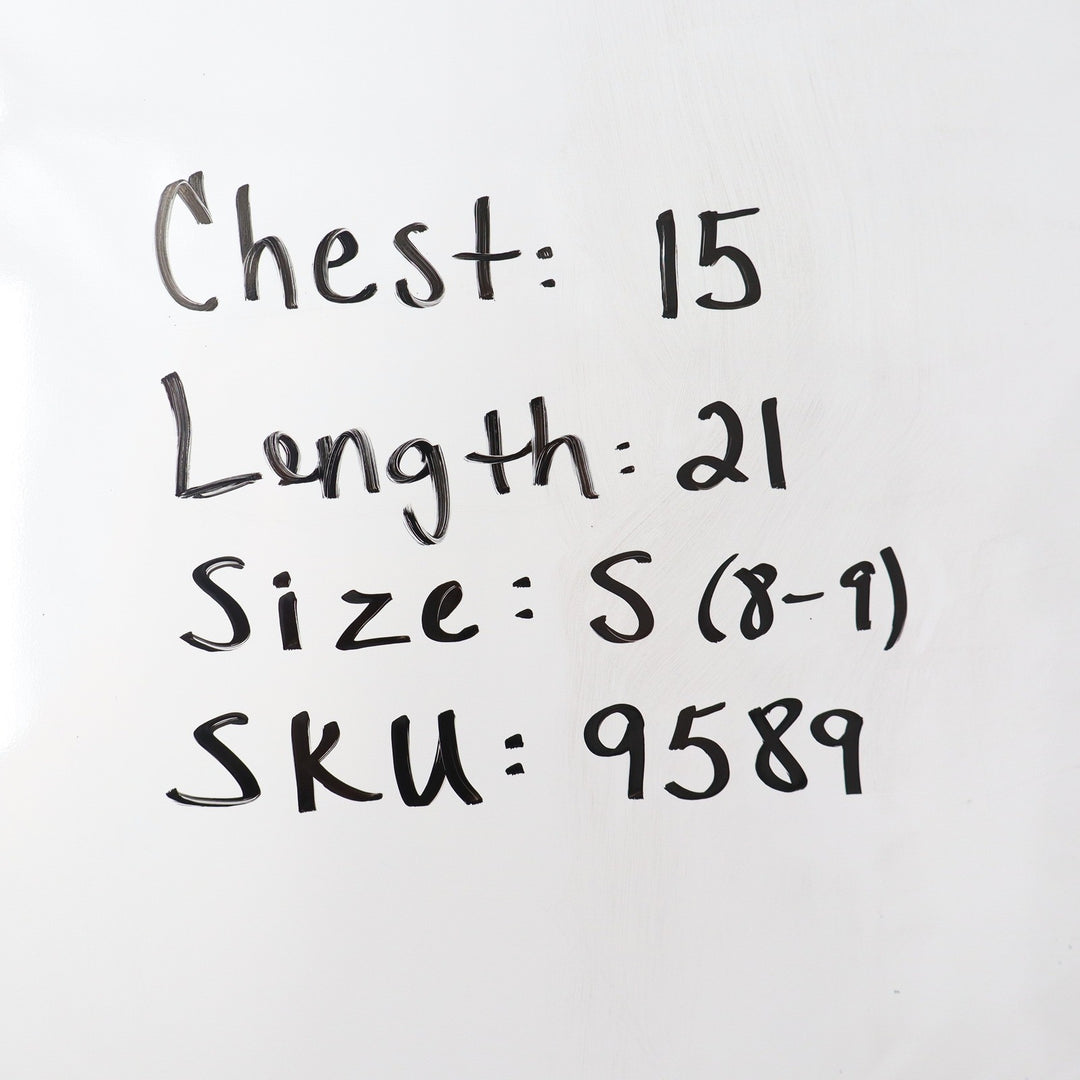 Chest: 15
Length: 21
Size: S (8-9)
SKU: 9589